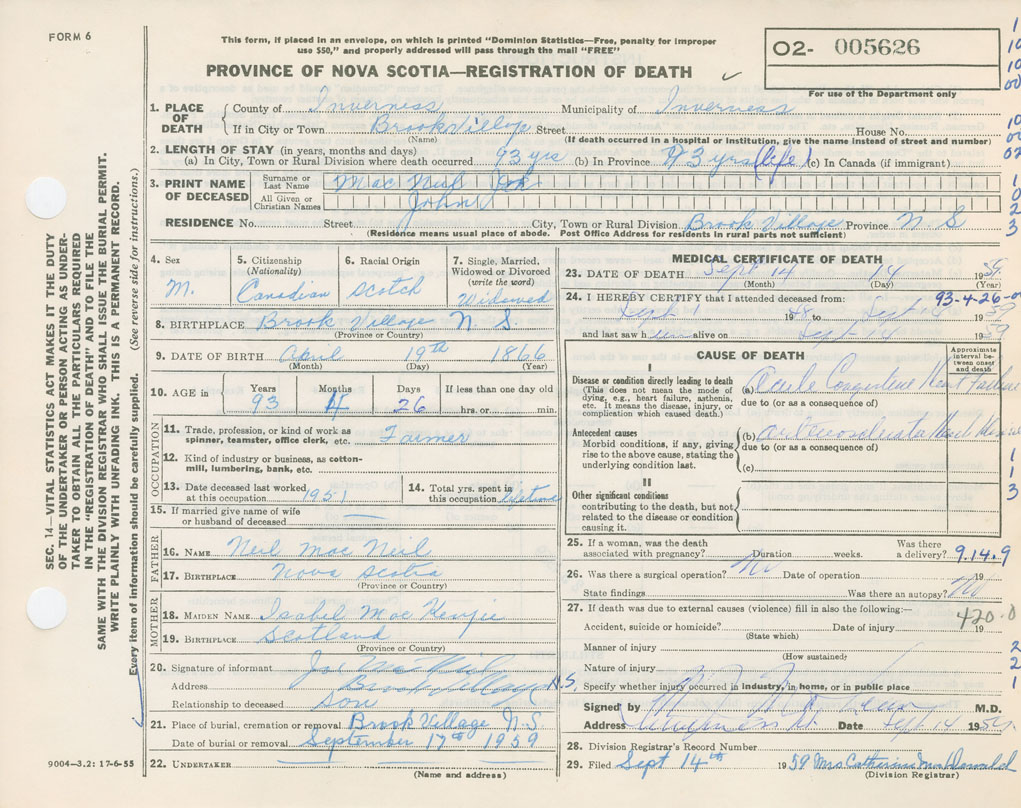 FORM 6
This form, if placed in an envelope, on which is printed "Dominion Statistics—Free, penalty for improper
use $50," and properly addressed will pass through the mail "FREE"
PROVINCE OF NOVA SCOTIA—REGISTRATION OF DEATH
O2- 005626
For use of the Department only
SEC. 14—VITAL STATISTICS ACT MAKES IT THE DUTY
OF THE UNDERTAKER OR PERSON ACTING AS UNDER-
TAKER TO OBTAIN ALL THE PARTICULARS REQUIRED
IN THE "REGISTRATION OF DEATH" AND TO FILE THE
SAME WITH THE DIVISION REGISTRAR WHO SHALL ISSUE THE BURIAL PERMIT.
WRITE PLAINLY WITH UNFADING INK. THIS IS A PERMANENT RECORD.
Every item of information should be carefully supplied. (See reverse side for instructions.)
1. PLACE OF DEATH
County of Inverness Municipality of Inverness
If in City or Town Brook Village Street House No.
(Name) (If death occurred in a hospital or institution, give the name instead of street and number)
2. LENGTH OF STAY (in years, months and days)
(a) In City, Town or Rural Division where death occurred 93 yrs (b) In Province 93 yrs (life) (c) In Canada (if immigrant)
3. PRINT NAME OF DECEASED
Surname or Last Name Mac Neil
All Given or Christian Names John
RESIDENCE No. Street City, Town or Rural Division Brook Village Province N. S
(Residence means usual place of abode. Post Office Address for residents in rural parts not sufficient)
4. Sex M.
5. Citizenship (Nationality) Canadian
6. Racial Origin Scotch
7. Single, Married, Widowed or Divorced (write the word) Widowed
8. BIRTHPLACE Brook Village N. S
(Province or Country)
9. DATE OF BIRTH April 19th 1866
(Month) (Day) (Year)
10. AGE in Years 93 Months 4 Days 26 If less than one day old hrs. or min.
OCCUPATION
11. Trade, profession, or kind of work as spinner, teamster, office clerk, etc. Farmer
12. Kind of industry or business, as cotton-mill, lumbering, bank, etc.
13. Date deceased last worked at this occupation 1951
14. Total yrs. spent in this occupation lifetime
15. If married give name of wife or husband of deceased —
FATHER
16. NAME Neil Mac Neil
17. BIRTHPLACE Nova Scotia
(Province or Country)
MOTHER
18. MAIDEN NAME Isabel Mac Kenzie
19. BIRTHPLACE Scotland
(Province or Country)
20. Signature of informant Joe MacNeil
Address Brook Village N.S,
Relationship to deceased Son
21. Place of burial, cremation or removal Brook Village N. S
Date of burial or removal September 17th 1959
22. UNDERTAKER
(Name and address)
9004—3.2: 17-6-55
MEDICAL CERTIFICATE OF DEATH
23. DATE OF DEATH Sept 14 14 1959.
(Month) (Day) (Year)
24. I HEREBY CERTIFY that I attended deceased from: 93-4-26-0
Sept 1 19 to Sept 1959
and last saw him alive on Sept 1959
CAUSE OF DEATH
Approximate interval between onset and death
I
Disease or condition directly leading to death
(This does not mean the mode of dying, e.g., heart failure, asthenia, etc. It means the disease, injury, or complication which caused death.)
(a) Acute Congestive Heart Failure
due to (or as a consequence of)
Antecedent causes
Morbid conditions, if any, giving rise to the above cause, stating the underlying condition last.
(b) Heart
due to (or as a consequence of)
(c)
II
Other significant conditions
contributing to the death, but not related to the disease or condition causing it.
25. If a woman, was the death associated with pregnancy? Duration weeks. Was there a delivery? 9.14.9
26. Was there a surgical operation? No Date of operation 19
State findings Was there an autopsy? No
27. If death was due to external causes (violence) fill in also the following:—
420.0
Accident, suicide or homicide? Date of injury 19
(State which)
Manner of injury
(How sustained?)
Nature of injury
Specify whether injury occurred in industry, in home, or in public place
Signed by M.D.
Address Date Sept 14 1959.
28. Division Registrar's Record Number
29. Filed Sept 14th 1959 Mrs Catherine MacDonald
(Division Registrar)